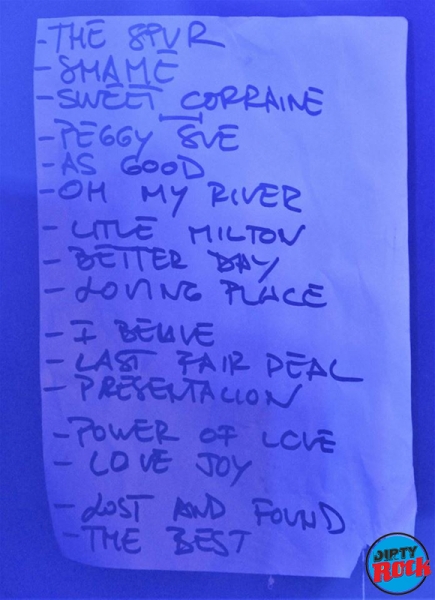 - THE SPUR
- SHAME
- SWEET CORRAINE
- PEGGY SUE
- AS GOOD
- OH MY RIVER
- LITLE MILTON
- BETTER DAY
- LOVING PLACE
- I BELIVE
- LAST FAIR DEAL
- PRESENTACION
- POWER OF LOVE
- LOVE JOY
- LOST AND FOUND
- THE BEST
DIRTY
ROCK